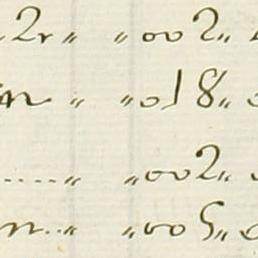 2r „ „ 002 „
n „ „ 018 „
..... „ „ 002 „
n .. „ „ 005 „